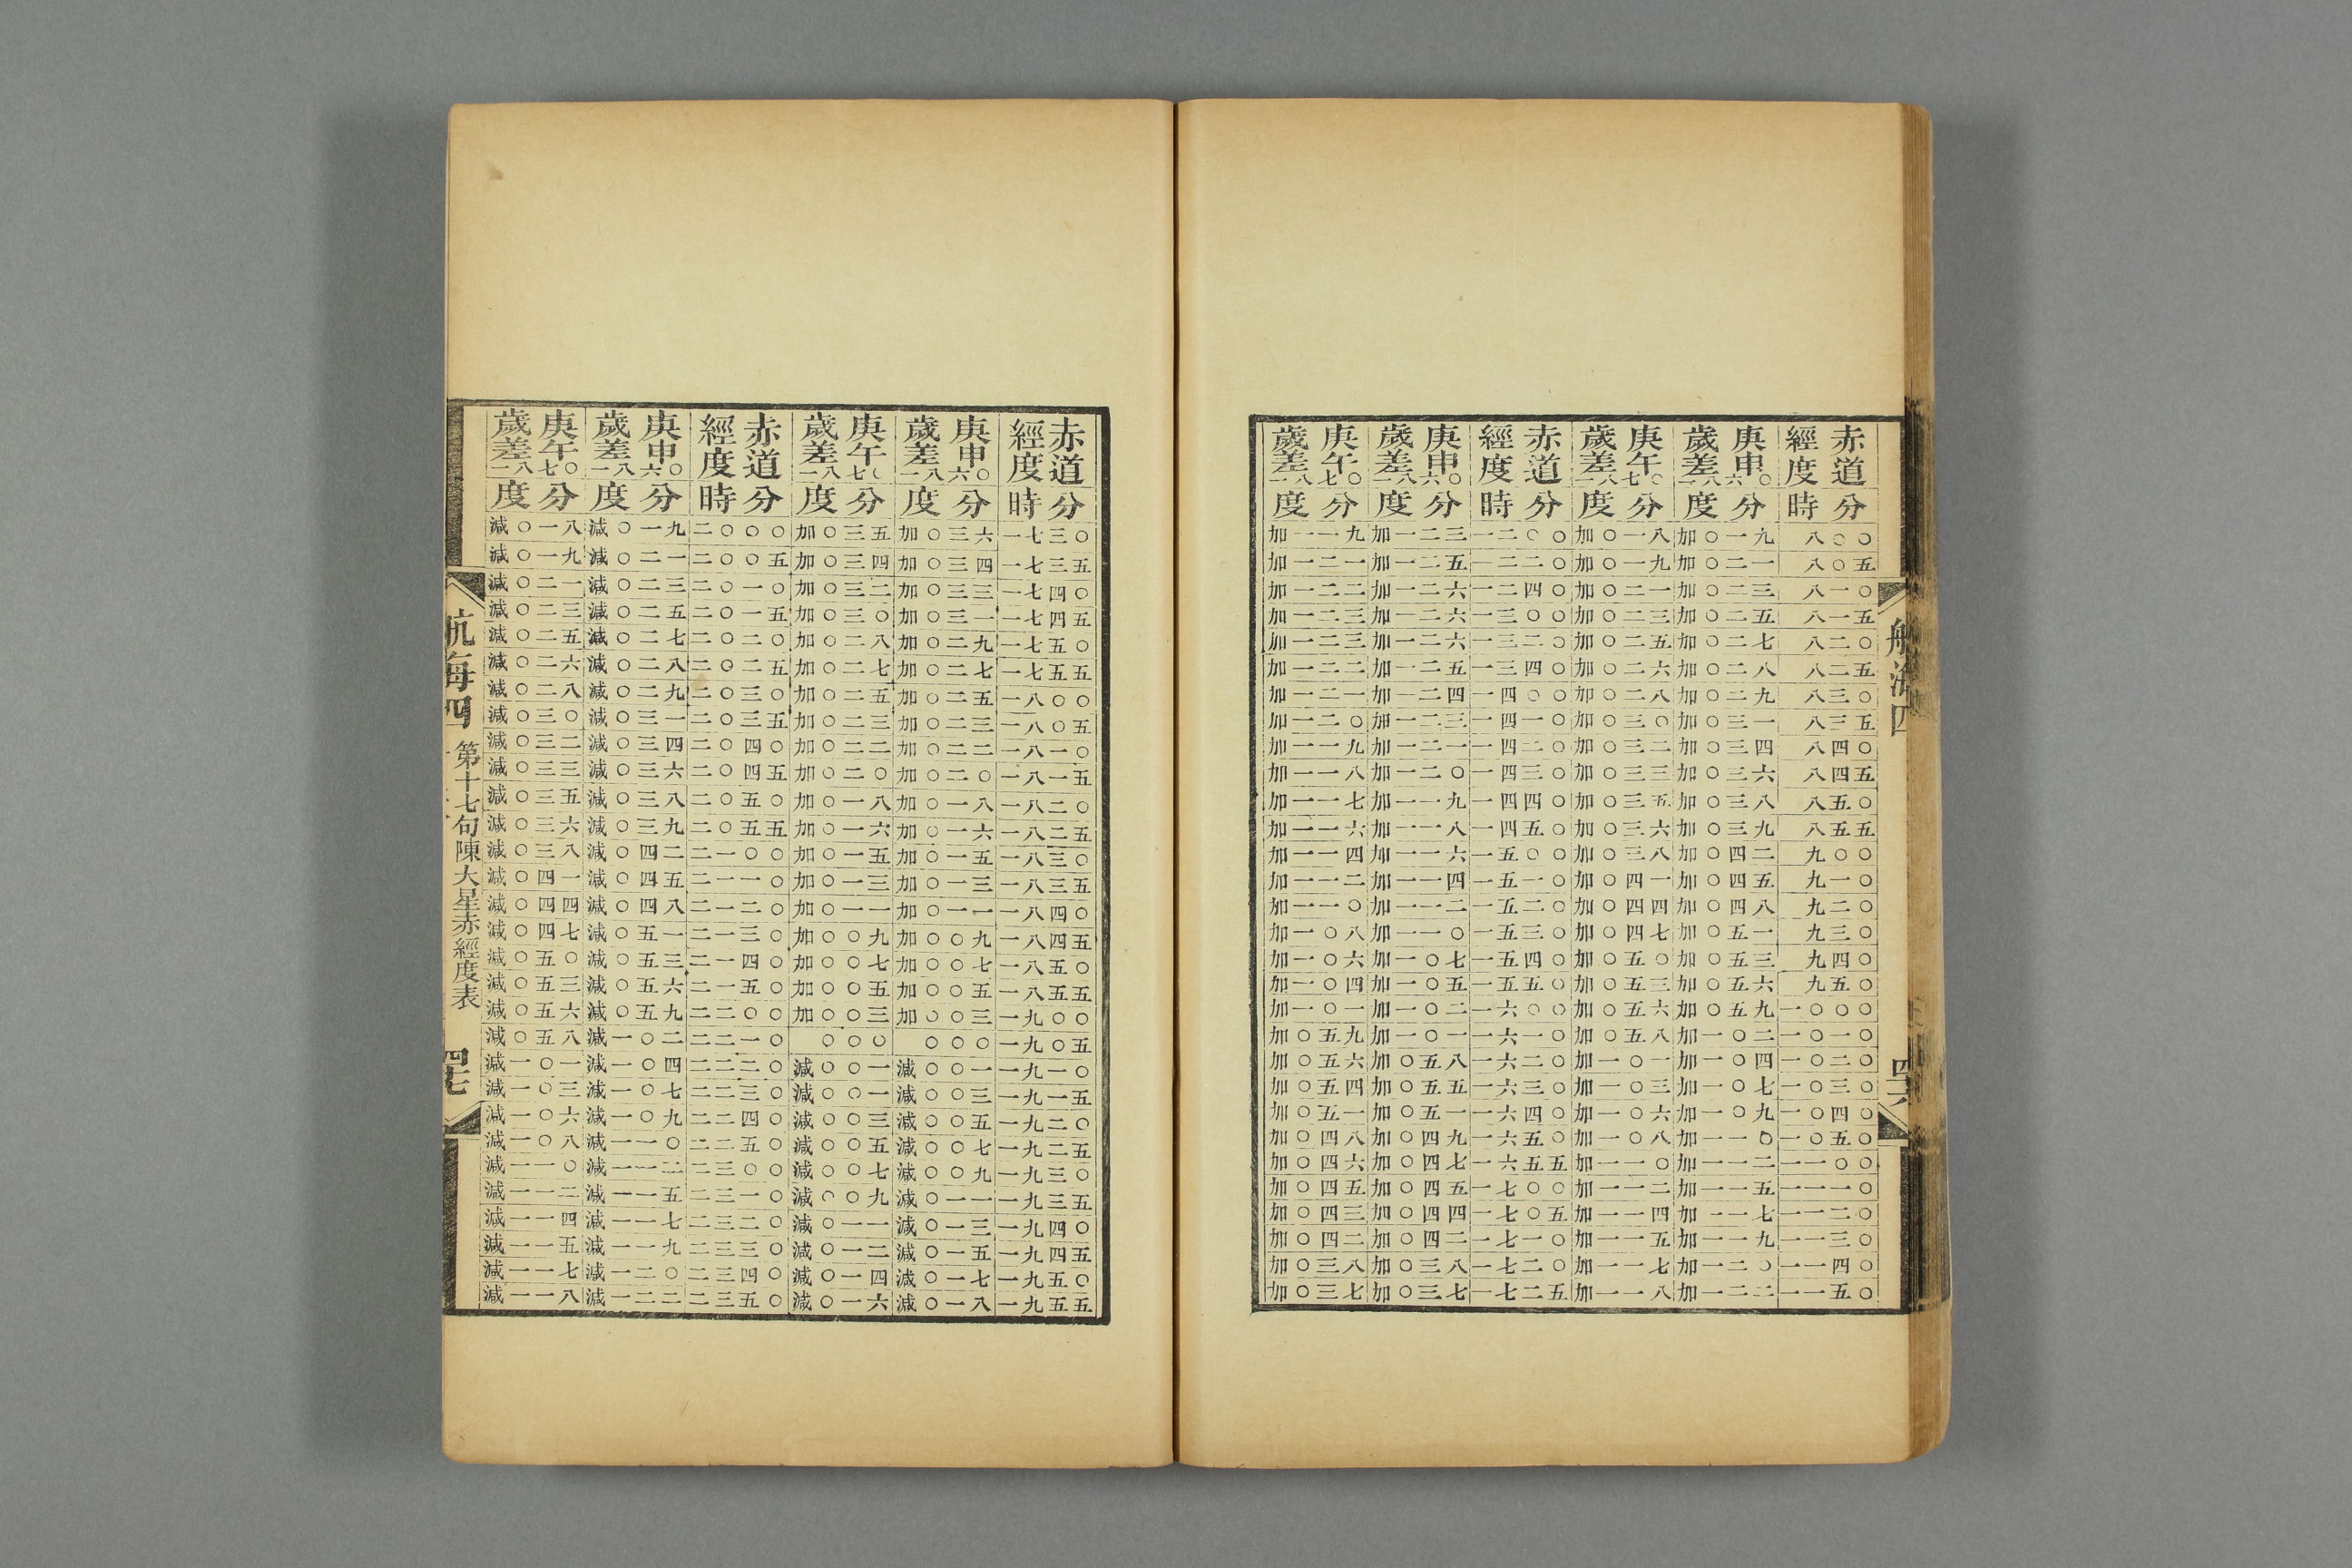 航海四
四六
赤道經度 庚申一八六〇歲差 庚午一八七〇歲差 赤道經度 庚申一八六〇歲差 庚午一八七〇歲差
度分 度分 時分 度分 度分 時分
加一一九 加一二三 一二〇〇 加〇一八 加〇一九 八〇〇
加一二一 加一二五 一二二〇 加〇一九 加〇二一 八〇五
加一二二 加一二六 一二四〇 加〇二一 加〇二三 八一〇
加一二三 加一二六 一三〇〇 加〇二三 加〇二五 八一五
加一二三 加一二六 一三二〇 加〇二五 加〇二七 八二〇
加一二二 加一二五 一三四〇 加〇二六 加〇二八 八二五
加一二一 加一二四 一四〇〇 加〇二八 加〇二九 八三〇
加一二〇 加一二三 一四一〇 加〇三〇 加〇三一 八三五
加一一九 加一二一 一四二〇 加〇三二 加〇三四 八四〇
加一一八 加一二〇 一四三〇 加〇三三 加〇三六 八四五
加一一七 加一一九 一四四〇 加〇三五 加〇三八 八五〇
加一一六 加一一八 一四五〇 加〇三六 加〇三九 八五五
加一一四 加一一六 一五〇〇 加〇三八 加〇四二 九〇〇
加一一二 加一一四 一五一〇 加〇四一 加〇四五 九一〇
加一一〇 加一一二 一五二〇 加〇四四 加〇四八 九二〇
加一〇八 加一一〇 一五三〇 加〇四七 加〇五一 九三〇
加一〇六 加一〇七 一五四〇 加〇五〇 加〇五三 九四〇
加一〇四 加一〇五 一五五〇 加〇五三 加〇五六 九五〇
加一〇一 加一〇二 一六〇〇 加〇五六 加〇五九 一〇〇〇
加〇五九 加一〇一 一六一〇 加〇五八 加一〇二 一〇一〇
加〇五六 加〇五八 一六二〇 加一〇一 加一〇四 一〇二〇
加〇五四 加〇五五 一六三〇 加一〇三 加一〇七 一〇三〇
加〇五一 加〇五一 一六四〇 加一〇六 加一〇九 一〇四〇
加〇四八 加〇四九 一六五〇 加一〇八 加一一〇 一〇五〇
加〇四六 加〇四七 一六五五 加一一〇 加一一二 一一〇〇
加〇四五 加〇四五 一七〇〇 加一一二 加一一五 一一一〇
加〇四三 加〇四四 一七〇五 加一一四 加一一七 一一二〇
加〇四二 加〇四二 一七一〇 加一一五 加一一九 一一三〇
加〇三八 加〇三八 一七二〇 加一一七 加一二〇 一一四〇
加〇三七 加〇三七 一七二五 加一一八 加一二二 一一五〇
赤道經度 庚申一八六〇歲差 庚午一八七〇歲差 赤道經度 庚申一八六〇歲差 庚午一八七〇歲差
度分 度分 時分 度分 度分 時分
減〇一八 減〇一九 二〇〇〇 加〇三五 加〇三六 一七三〇
減〇一九 減〇二一 二〇〇五 加〇三四 加〇三四 一七三五
減〇二一 減〇二三 二〇一〇 加〇三二 加〇三三 一七四〇
減〇二三 減〇二五 二〇一五 加〇三〇 加〇三一 一七四五
減〇二五 減〇二七 二〇二〇 加〇二八 加〇二九 一七五〇
減〇二六 減〇二八 二〇二五 加〇二七 加〇二七 一七五五
減〇二八 減〇二九 二〇三〇 加〇二五 加〇二五 一八〇〇
減〇三〇 減〇三一 二〇三五 加〇二三 加〇二三 一八〇五
減〇三二 減〇三四 二〇四〇 加〇二二 加〇二二 一八一〇
減〇三三 減〇三六 二〇四五 加〇二〇 加〇二〇 一八一五
減〇三五 減〇三八 二〇五〇 加〇一八 加〇一八 一八二〇
減〇三六 減〇三九 二〇五五 加〇一六 加〇一六 一八二五
減〇三八 減〇四二 二一〇〇 加〇一五 加〇一五 一八三〇
減〇四一 減〇四五 二一一〇 加〇一三 加〇一三 一八三五
減〇四四 減〇四八 二一二〇 加〇一一 加〇一一 一八四〇
減〇四七 減〇五一 二一三〇 加〇〇九 加〇〇九 一八四五
減〇五〇 減〇五三 二一四〇 加〇〇七 加〇〇七 一八五〇
減〇五三 減〇五六 二一五〇 加〇〇五 加〇〇五 一八五五
減〇五六 減〇五九 二二〇〇 加〇〇三 加〇〇三 一九〇〇
減〇五八 減一〇二 二二一〇 〇〇〇 〇〇〇 一九〇五
減一〇一 減一〇四 二二二〇 減〇〇一 減〇〇一 一九一〇
減一〇三 減一〇七 二二三〇 減〇〇一 減〇〇三 一九一五
減一〇六 減一〇九 二二四〇 減〇〇三 減〇〇五 一九二〇
減一〇八 減一一〇 二二五〇 減〇〇五 減〇〇七 一九二五
減一一〇 減一一二 二三〇〇 減〇〇七 減〇〇九 一九三〇
減一一二 減一一五 二三一〇 減〇〇九 減〇一一 一九三五
減一一四 減一一七 二三二〇 減〇一一 減〇一三 一九四〇
減一一五 減一一九 二三三〇 減〇一二 減〇一五 一九四五
減一一七 減一二〇 二三四〇 減〇一四 減〇一七 一九五〇
減一一八 減一二二 二三五〇 減〇一六 減〇一八 一九五五
航海四
第十七句陳大星赤經度表
四七